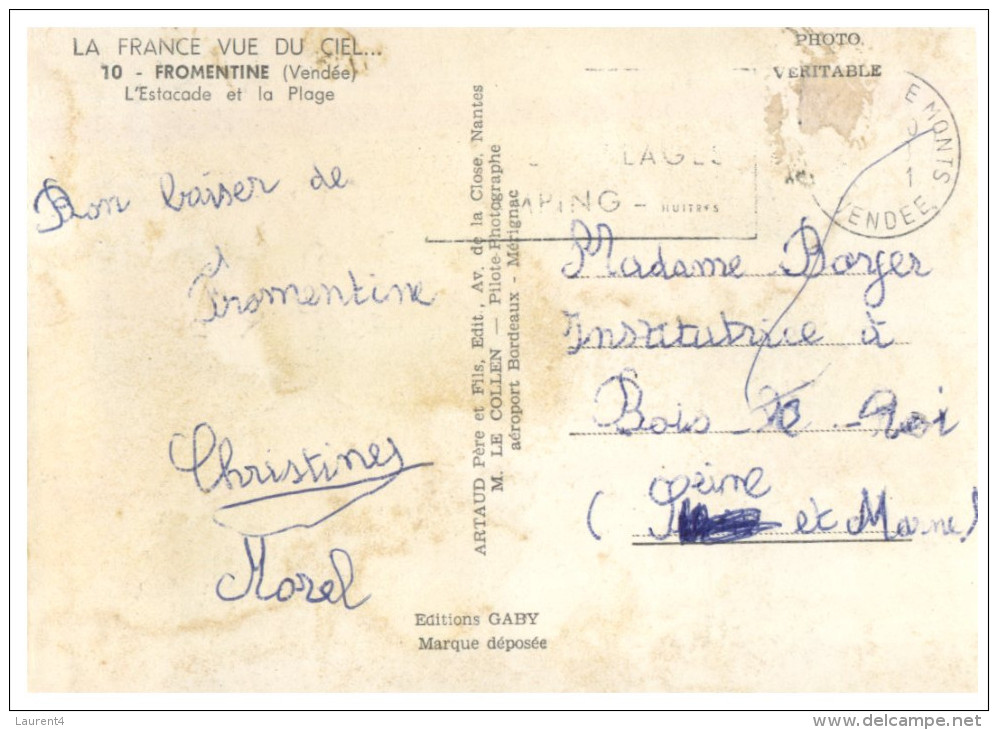 LA FRANCE VUE DU CIEL...
10 - FROMENTINE (Vendée)
L'Estacade et la Plage
PHOTO
VERITABLE
E MONTS
1
VENDEE
LAGES
APING - HUITRES
Bon baiser de
Fromentine
Christines
Morel
ARTAUD Père et Fils, Edit., Av. de la Close, Nantes
M. LE COLLEN — Pilote-Photographe
aéroport Bordeaux - Mérignac
Madame Borger
Institutrice à
Bois le Roi
(Seine et Marne)
Editions GABY
Marque déposée
Laurent4
www.delcampe.net